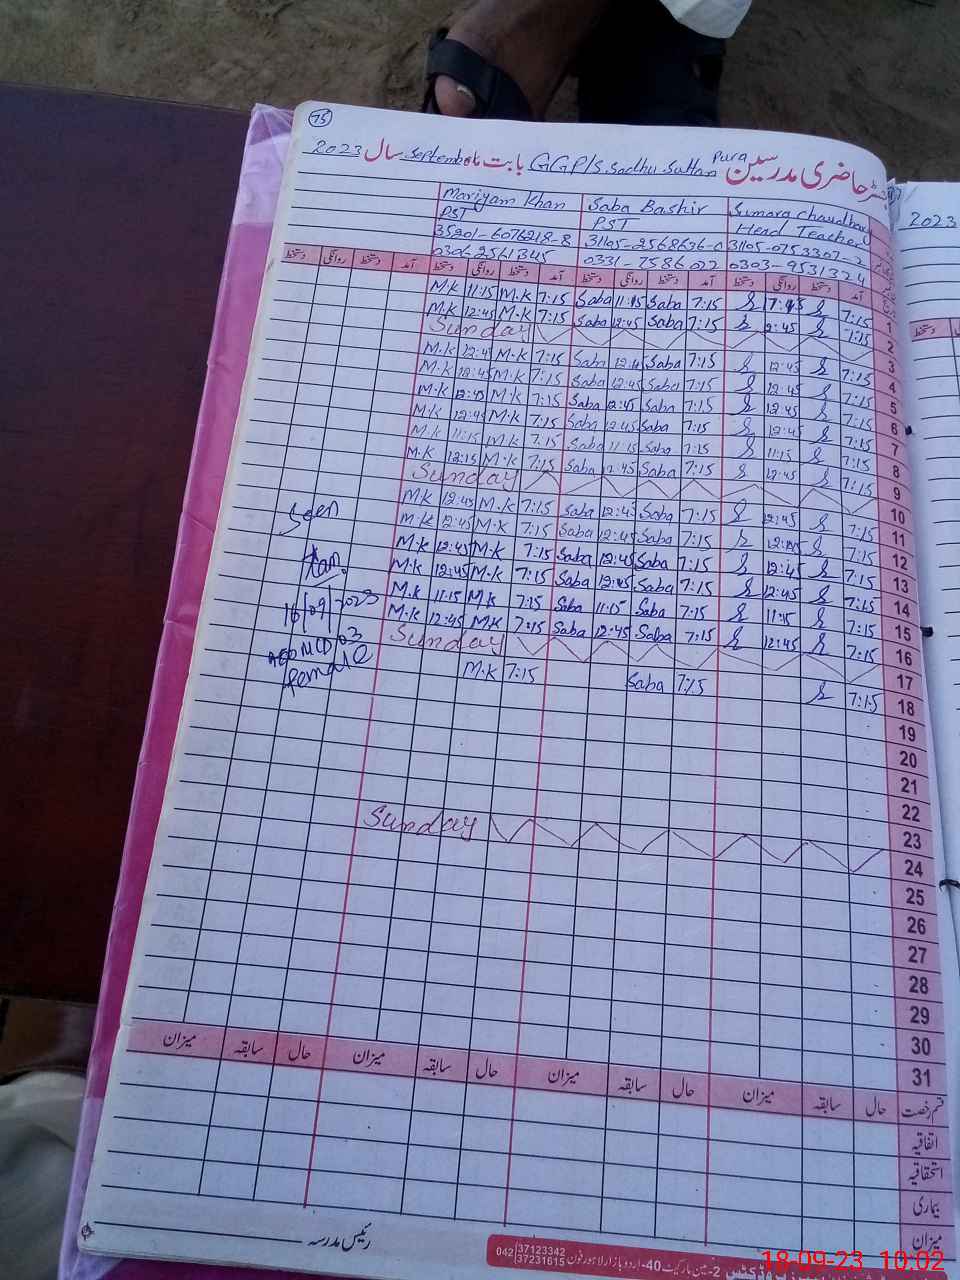 75
حاضری مدرسین GGP/S. Sadhu Suttan Pura بابت ماہ September سال 2023
Mariyam Khan Saba Bashir Sumara chaudhary
PST PST Head Teacher
35201-6076218-8 31105-2568636-0 31105-0753307-2
0306-2561345 0331-7586022 0303-9531324
دستخط روانگی دستخط آمد دستخط روانگی دستخط آمد دستخط روانگی دستخط آمد دستخط روانگی دستخط آمد
M.K 11:15 M.K 7:15 Saba 11:15 Saba 7:15 7:15 1
M.K 12:45 M.K 7:15 Saba 12:45 Saba 7:15 12:45 7:15 2
Sunday 3
M.K 12:45 M.K 7:15 Saba 12:45 Saba 7:15 12:45 7:15 4
M.K 12:45 M.K 7:15 Saba 12:45 Saba 7:15 12:45 7:15 5
M.K 12:45 M.K 7:15 Saba 12:45 Saba 7:15 12:45 7:15 6
M.K 12:45 M.K 7:15 Saba 12:45 Saba 7:15 12:45 7:15 7
M.K 11:15 M.K 7:15 Saba 11:15 Saba 7:15 11:15 7:15 8
M.K 12:15 M.K 7:15 Saba 12:45 Saba 7:15 12:45 7:15 9
Sunday 10
M.K 12:45 M.K 7:15 Saba 12:45 Saba 7:15 12:45 7:15 11
M.K 12:45 M.K 7:15 Saba 12:45 Saba 7:15 12:45 7:15 12
M.K 12:45 M.K 7:15 Saba 12:45 Saba 7:15 12:45 7:15 13
M.K 12:45 M.K 7:15 Saba 12:45 Saba 7:15 12:45 7:15 14
M.K 11:15 M.K 7:15 Saba 11:15 Saba 7:15 11:15 7:15 15
M.K 12:45 M.K 7:15 Saba 12:45 Saba 7:15 12:45 7:15 16
Sunday 17
M.K 7:15 Saba 7:15 7:15 18
Seen
16/09/2023
female
19
20
21
22
23
Sunday 24
25
26
27
28
29
30
31
میزان سابقہ حال میزان سابقہ حال میزان سابقہ حال میزان سابقہ حال قسم رخصت
اتفاقیہ
استحقاقیہ
بیماری
میزان
رئیس مدرسہ
042 37123342
37231615
2-مین مارکیٹ 40-اردو بازار لاہور فون
2023
دستخط
18-09-23 10:02